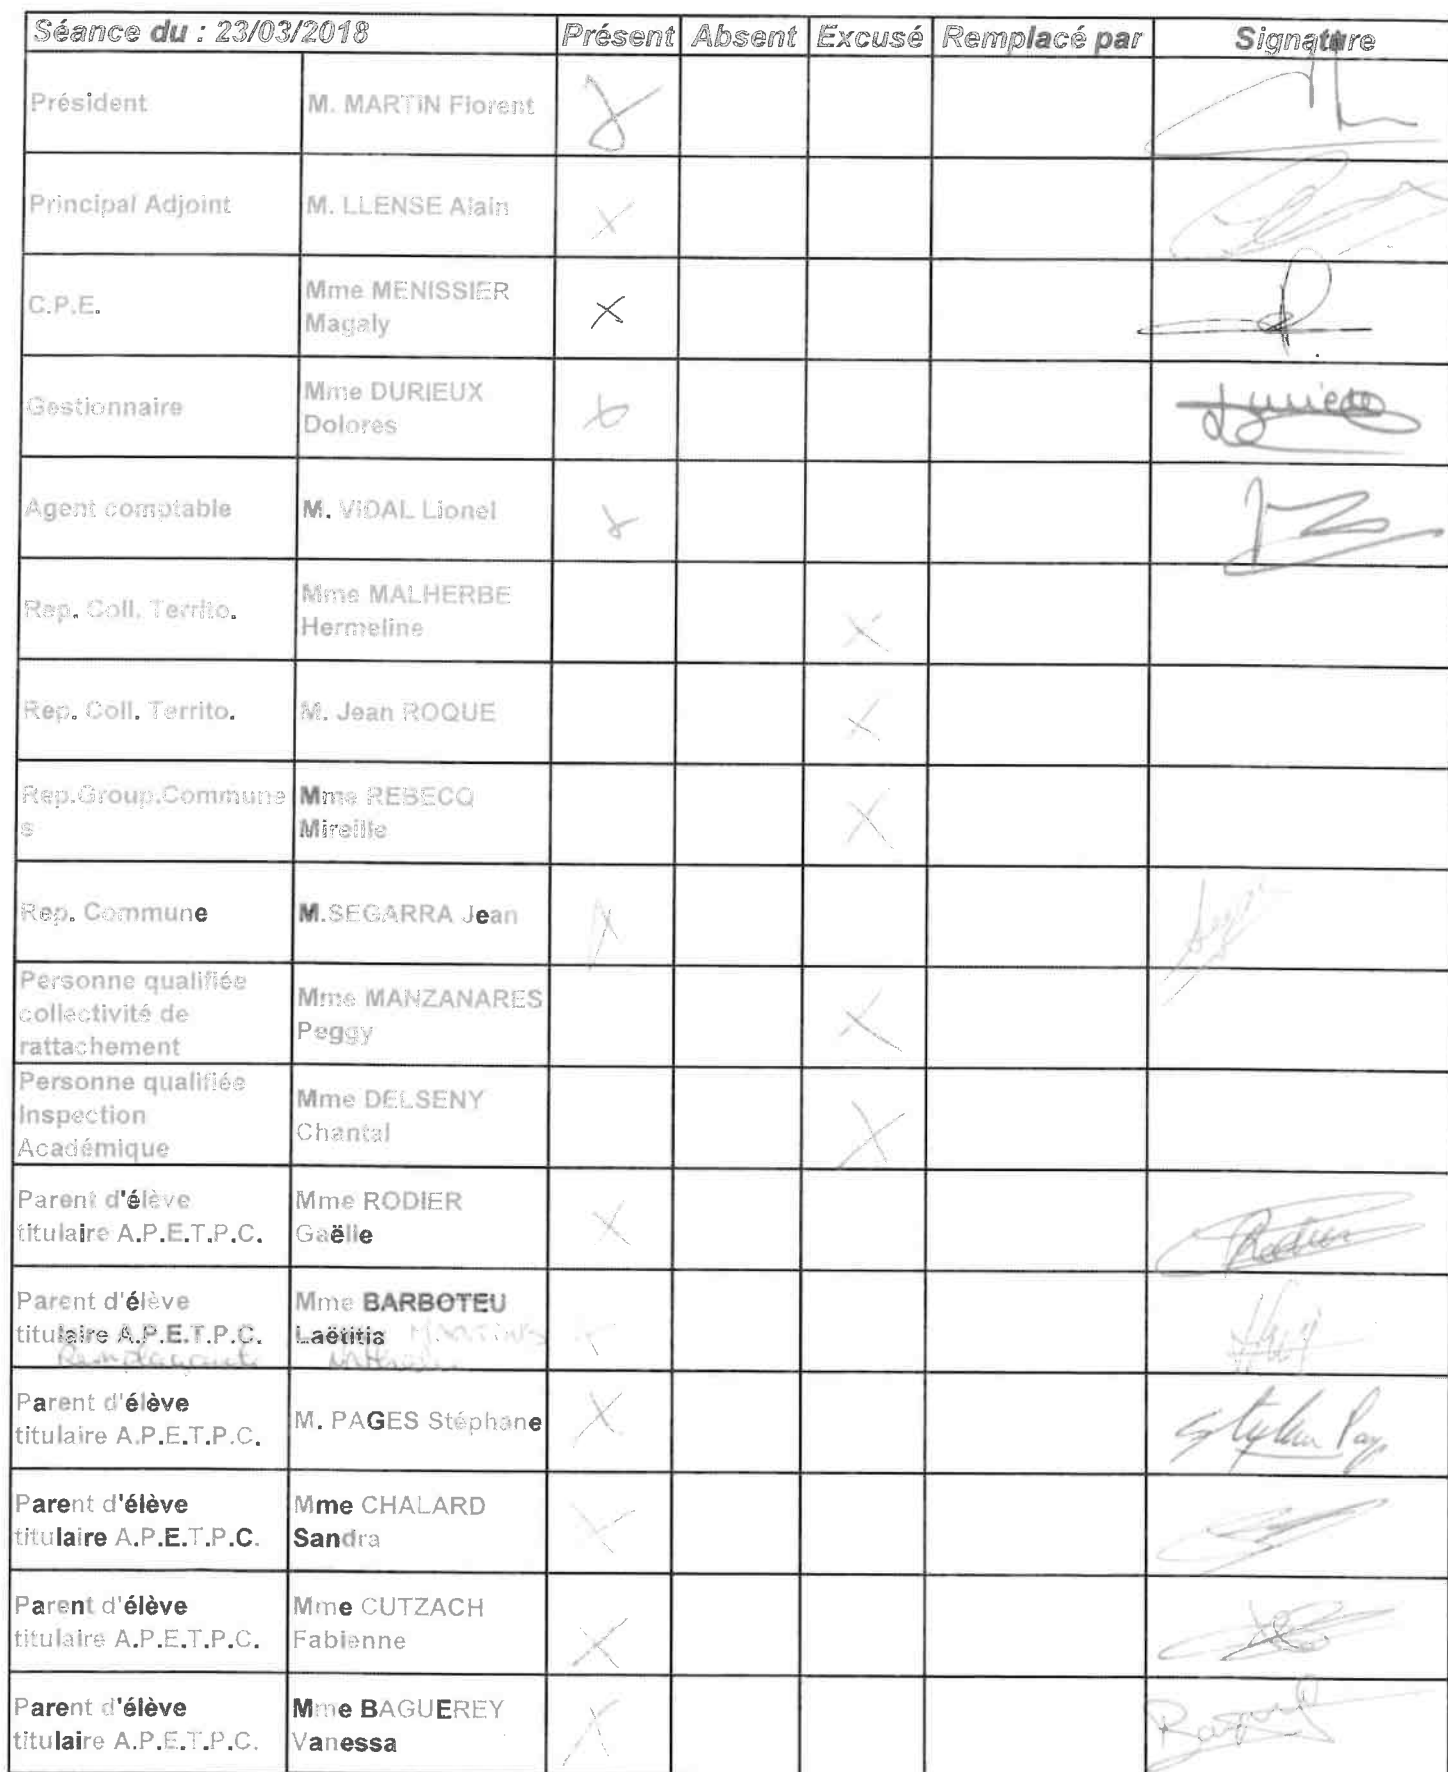 Séance du : 23/03/2018 Présent Absent Excusé Remplacé par Signature
Président M. MARTIN Florent
Principal Adjoint M. LLENSE Alain
C.P.E. Mme MENISSIER
Magaly
Gestionnaire Mme DURIEUX
Dolores
Agent comptable M. VIDAL Lionel
Rep. Coll. Territo. Mme MALHERBE
Hermeline
Rep. Coll. Territo. M. Jean ROQUE
Rep.Group.Commune Mme REBECQ
s Mireille
Rep. Commune M.SEGARRA Jean
Personne qualifiée
collectivité de
rattachement
Mme MANZANARES
Peggy
Personne qualifiée
Inspection
Académique
Mme DELSENY
Chantal
Parent d'élève Mme RODIER
titulaire A.P.E.T.P.C. Gaëlle
Parent d'élève Mme BARBOTEU
titulaire A.P.E.T.P.C. Laëtitia MARTINS
Remplaçante
Parent d'élève
titulaire A.P.E.T.P.C.
M. PAGES Stéphane
Parent d'élève Mme CHALARD
titulaire A.P.E.T.P.C. Sandra
Parent d'élève Mme CUTZACH
titulaire A.P.E.T.P.C. Fabienne
Parent d'élève Mme BAGUEREY
titulaire A.P.E.T.P.C. Vanessa